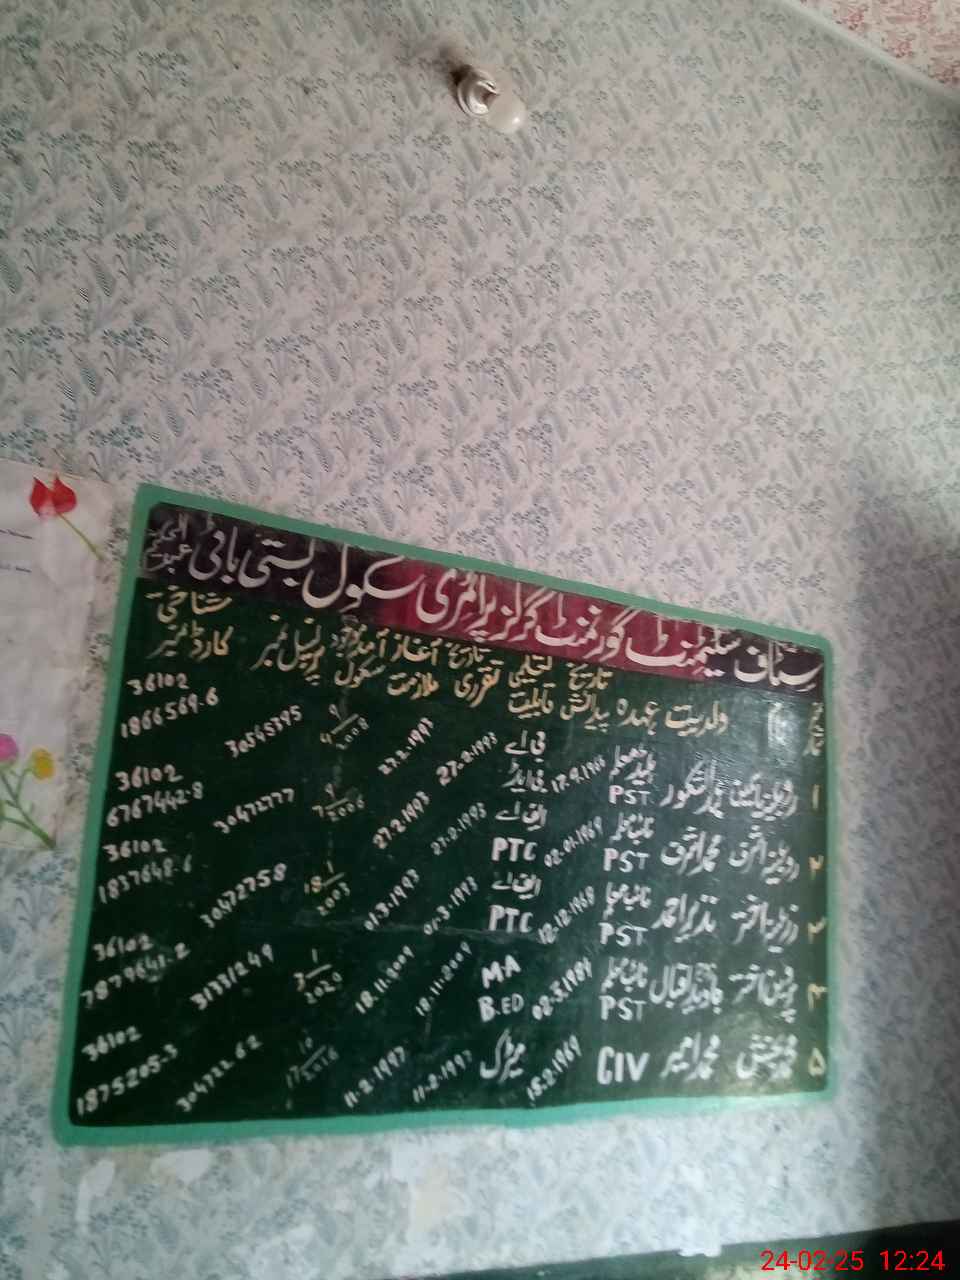 سٹاف سٹیٹمنٹ گورنمنٹ گرلز پرائمری سکول بستی باقی
نمبر شمار نام ولدیت عہدہ تاریخ پیدائش تعلیمی قابلیت تاریخ تقرری آغاز ملازمت آمد موجودہ سکول پرسنل نمبر شناختی کارڈ نمبر
۱ عبدالشکور PST 17-9-19 بی اے بی ایڈ 27-2-1993 27-2-1993 9/4/2008 30545395 36102 1866569-6
۲ محمد اشرف PST 02-01-1969 ایف اے PTC 27-2-1993 27-2-1993 30472777 36102 6767442-8
۳ اختر نذیر احمد PST 12-12-1968 ایف اے PTC 01-3-1993 01-3-1993 18/1/2003 30472758 36102 1837648-6
۴ پروین اختر جاوید اقبال PST 02-3-1984 M.A B.ED 18-11-2009 18-11-2009 31331249 36102 7879641-2
۵ محمد بخش محمد امیر CIV 15-2-1969 میٹرک 11-2-1997 11-2-1997 17/10/2016 30472262 36102 1875205-3
24-02-25 12:24